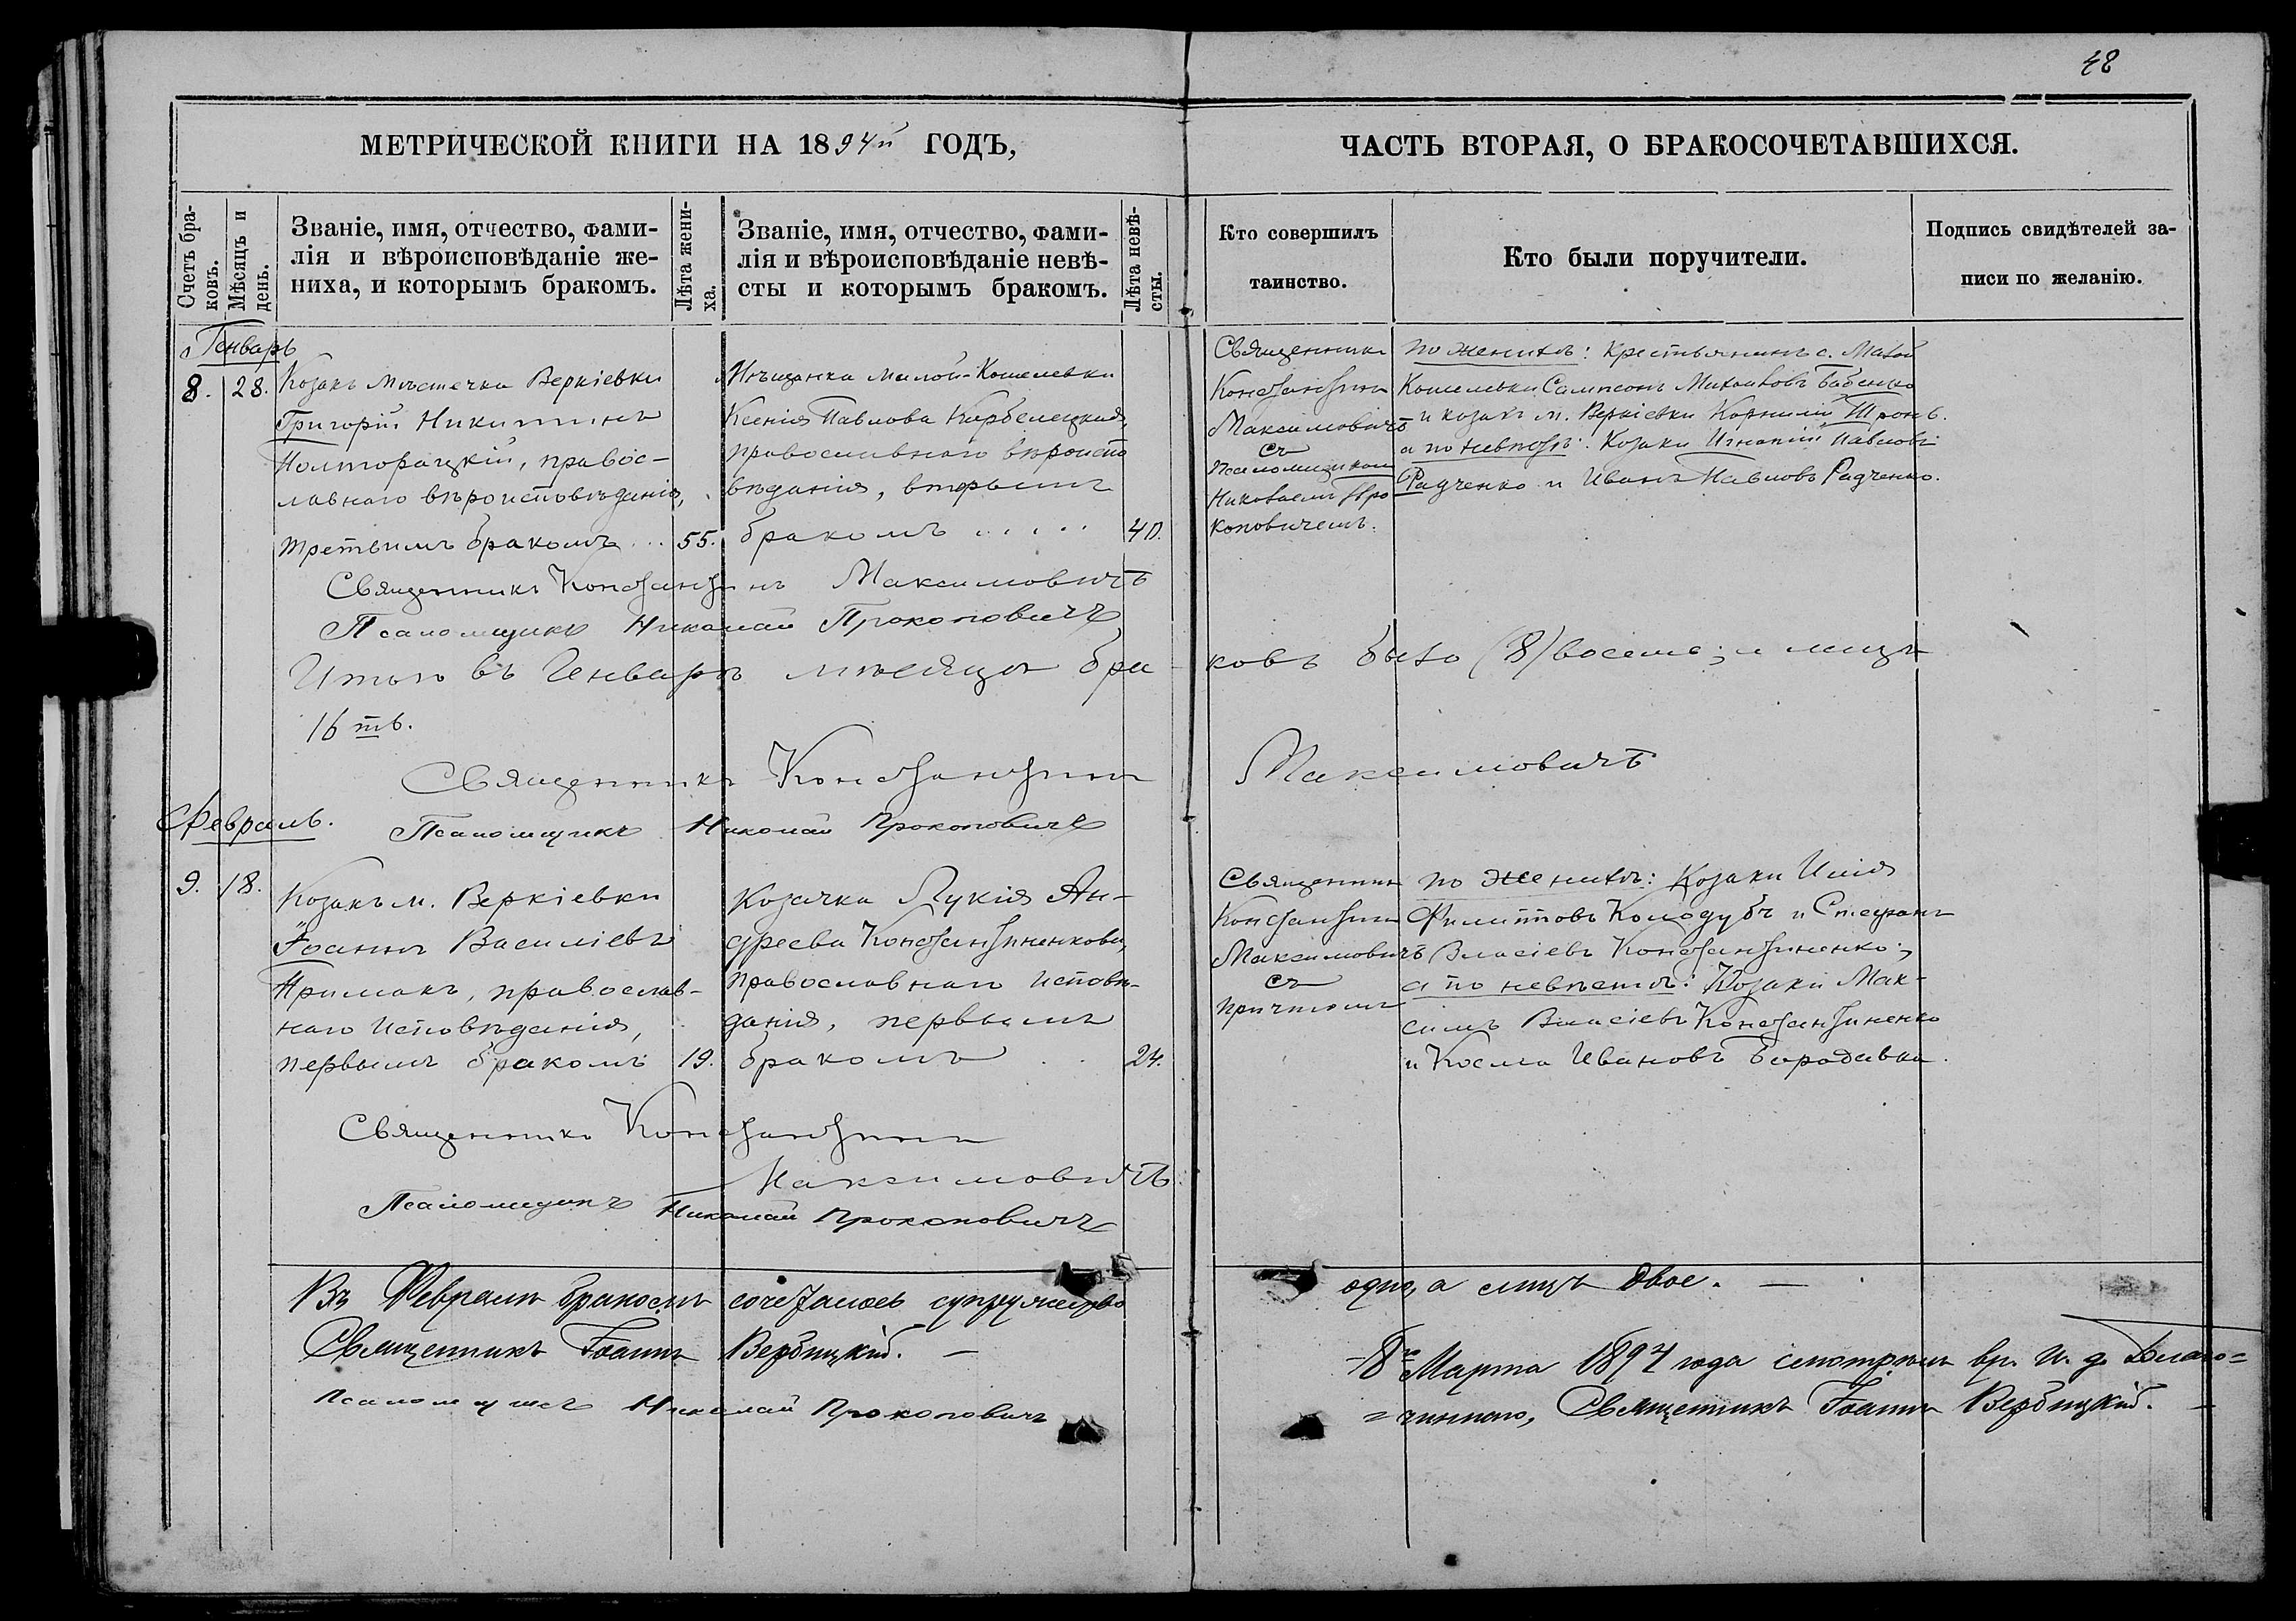 48
МЕТРИЧЕСКОЙ КНИГИ НА 1894й ГОДЪ,
ЧАСТЬ ВТОРАЯ, О БРАКОСОЧЕТАВШИХСЯ.
Счетъ бра-
ковъ.
Мѣсяцъ и
день.
Званіе, имя, отчество, фами-
лія и вѣроисповѣданіе же-
ниха, и которымъ бракомъ.
Лѣта жени-
ха.
Званіе, имя, отчество, фами-
лія и вѣроисповѣданіе невѣ-
сты и которымъ бракомъ.
Лѣта невѣ-
сты.
Кто совершилъ
таинство.
Кто были поручители.
Подпись свидѣтелей за-
писи по желанію.
Генварь
8. 28.
Козакъ мѣстечка Веркіевки
Григорій Никитинъ
Полторацкій, правос-
лавнаго вѣроисповѣданія,
третьимъ бракомъ ... 55.
Мѣщанка Малой-Кошелевки
Ксенія Павлова
православнаго вѣроиспо
вѣданія, вторымъ
бракомъ ..... 40.
Священникъ
Константинъ
Максимовичъ
съ
Псаломщикомъ
Николаемъ Про
коповичемъ.
по женихѣ: Крестьянинъ с. Малой
Кошелевки Сампсонъ Михайловъ Бабенко
и козакъ м. Веркіевки Корнилій Шронь.
а по невѣстѣ: Козаки Игнатій Павловъ
Радченко и Иванъ Павловъ Радченко.
Священникъ Константинъ Максимовичъ
Псаломщикъ Николай Прокоповичъ
Итого въ Генварѣ мѣсяцѣ бра
ковъ было (8) восемь; а лицъ
16 ть.
Священникъ Константинъ Максимовичъ
Февраль.
Псаломщикъ Николай Прокоповичъ
9. 18.
Козакъ м. Веркіевки
Іоаннъ Василіевъ
Примакъ, православ-
наго исповѣданія,
первымъ бракомъ 19.
Козачка Лукія Ан-
дреева Константиненкова,
православнаго исповѣ-
данія, первымъ
бракомъ .. 24.
Священникъ
Константинъ
Максимовичъ
съ
причтомъ
по женихѣ: Козаки Илія
Филипповъ Колодубъ и Стефанъ
Власіевъ Константиненко;
а по невѣстѣ: Козаки Мак-
симъ Власіевъ Константиненко
и Косма Ивановъ Бородавка.
Священникъ Константинъ
Максимовичъ
Псаломщикъ Николай Прокоповичъ
Въ Февралѣ бракомъ сочеталось супружество
одно, а лицъ двое. —
Священникъ Іоаннъ Вербицкій. —
Псаломщикъ Николай Прокоповичъ
8го Марта 1894 года смотрѣлъ вр. и. д. Благо=
=чиннаго, Священникъ Іоаннъ Вербицкій. —